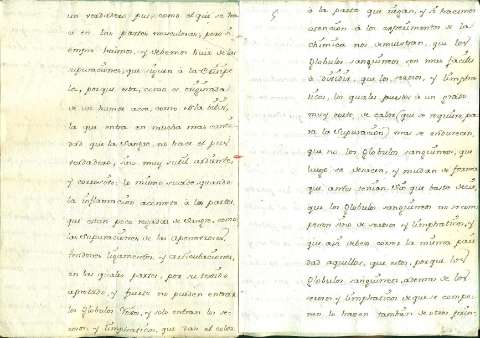 un verdadero pus, como el que se ha
á en las partes musculares, pero
siempre bueno, y debemos huir de las
supuraciones, que siguen á la
la, porque esta, como es originada
de un humor acre, como es la bilis,
la que entra en mucha mas canti
dad que la Sangre, no hace el pus
verdadero, sino muy sutil ardiente,
y corrosivo: lo mismo sucede quando
la inflamacion acomete á las partes
que estan poco regadas de Sangre, como
las supuraciones de las Aponeuroses,
tendones ligamentos, y articulaciones,
en las quales partes, por su texido
apretado, y fuerte no pueden entrar
los Globulos roxos, y solo entran los se-
rosos y limphaticos, que dan el color
5
á la parte que riegan, y si hacemos
atencion á los experimentos de la
chimica nos demuestran, que los
Globulos sanguineos son mas faciles
á dividir, que los serosos, y limpha
ticos, los quales puestos á un grado
muy fuerte de calor (que se requiere pa
ra la Supuracion) mas se endurecen,
que no los Globulos sanguineos, que
luego se deshacen, y mudan de forma
que antes tenian. Sino que baste decir,
que los Globulos sanguineos no se com
ponen sino de serosos y limphaticos, y
que asi deben correr la misma pari
dad aquellos, que estos, porque los
Globulos sanguineos, ademas de los
serosos y limphaticos de que se compo-
nen lo hacen tambien de otras